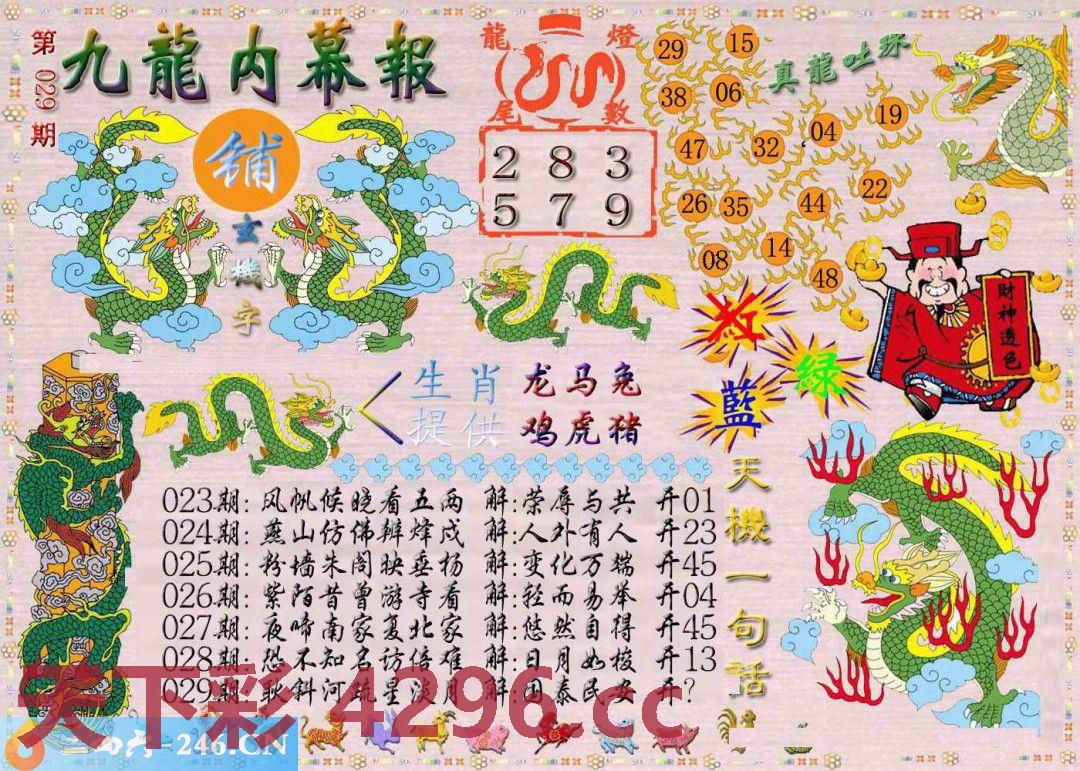 第029期
九龍内幕報
龍燈
尾數
283
579
真龍吐珠
29
15
38
06
19
04
47
32
22
26
35
44
14
08
48
铺
玄機字
财神透色
红
绿
藍
生肖
提供
龙马兔
鸡虎猪
天機一句话
023期:风帆候晓看五两 解:荣辱与共 开01
024期:燕山仿佛辨烽戍 解:人外有人 开23
025期:粉墙朱阁映垂杨 解:变化万端 开45
026期:紫陌昔曾游寺看 解:轻而易举 开04
027期:夜啼南家复北家 解:悠然自得 开45
028期:恐不知名访倍难 解:日月如梭 开13
029期:耿斜河疏星淡月 解:国泰民安 开?
天下彩 4296.cc
=246.CN